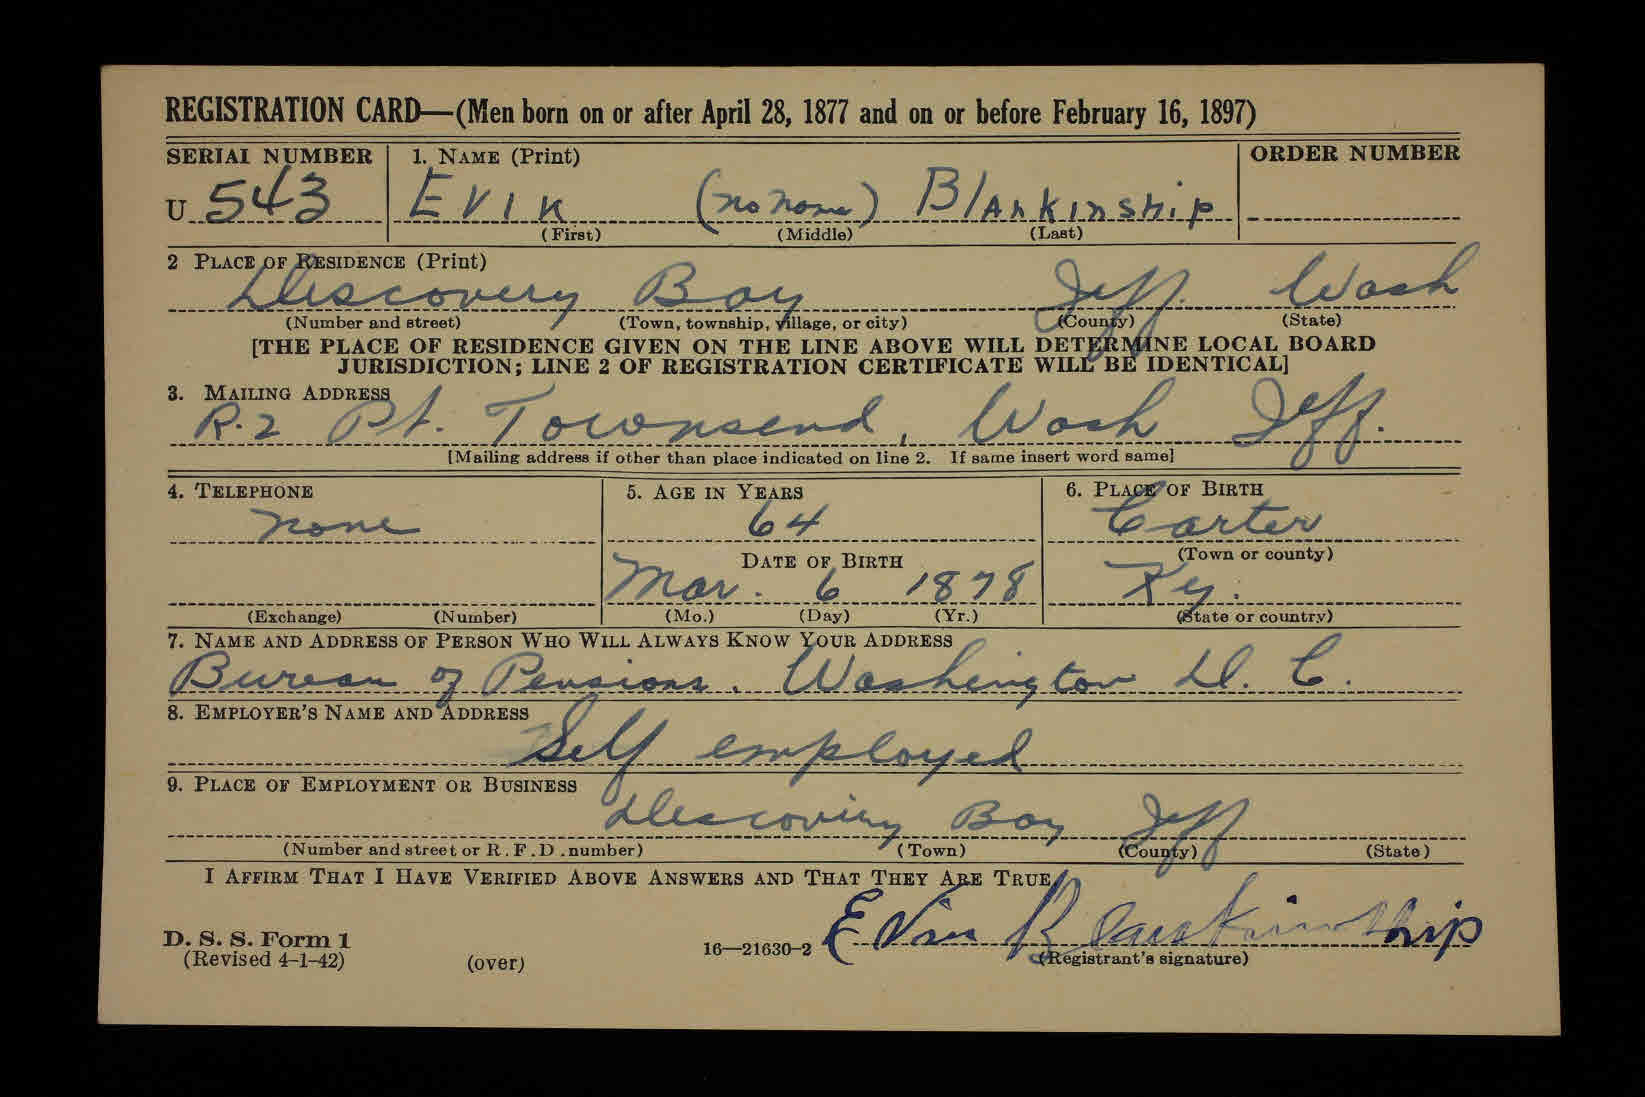 REGISTRATION CARD—(Men born on or after April 28, 1877 and on or before February 16, 1897)
SERIAL NUMBER 1. NAME (Print) ORDER NUMBER
U 543 EVIN (no none) BlAnkinship
(First) (Middle) (Last)
2 PLACE OF RESIDENCE (Print)
Discovery Bay Jeff. Wash
(Number and street) (Town, township, village, or city) (County) (State)
[THE PLACE OF RESIDENCE GIVEN ON THE LINE ABOVE WILL DETERMINE LOCAL BOARD
JURISDICTION; LINE 2 OF REGISTRATION CERTIFICATE WILL BE IDENTICAL]
3. MAILING ADDRESS
R.2 Pt. Townsend, Wash Jeff.
[Mailing address if other than place indicated on line 2. If same insert word same]
4. TELEPHONE 5. AGE IN YEARS 6. PLACE OF BIRTH
none 64 Carter
DATE OF BIRTH (Town or county)
Mar. 6 1878 Ky.
(Exchange) (Number) (Mo.) (Day) (Yr.) (State or country)
7. NAME AND ADDRESS OF PERSON WHO WILL ALWAYS KNOW YOUR ADDRESS
Bureau of Pensions. Washington D. C.
8. EMPLOYER'S NAME AND ADDRESS
Self employed
9. PLACE OF EMPLOYMENT OR BUSINESS
Discovery Bay Jeff
(Number and street or R. F. D. number) (Town) (County) (State)
I AFFIRM THAT I HAVE VERIFIED ABOVE ANSWERS AND THAT THEY ARE TRUE.
D. S. S. Form 1 16—21630-2 Evin Blankinship
(Revised 4-1-42) (over) (Registrant's signature)